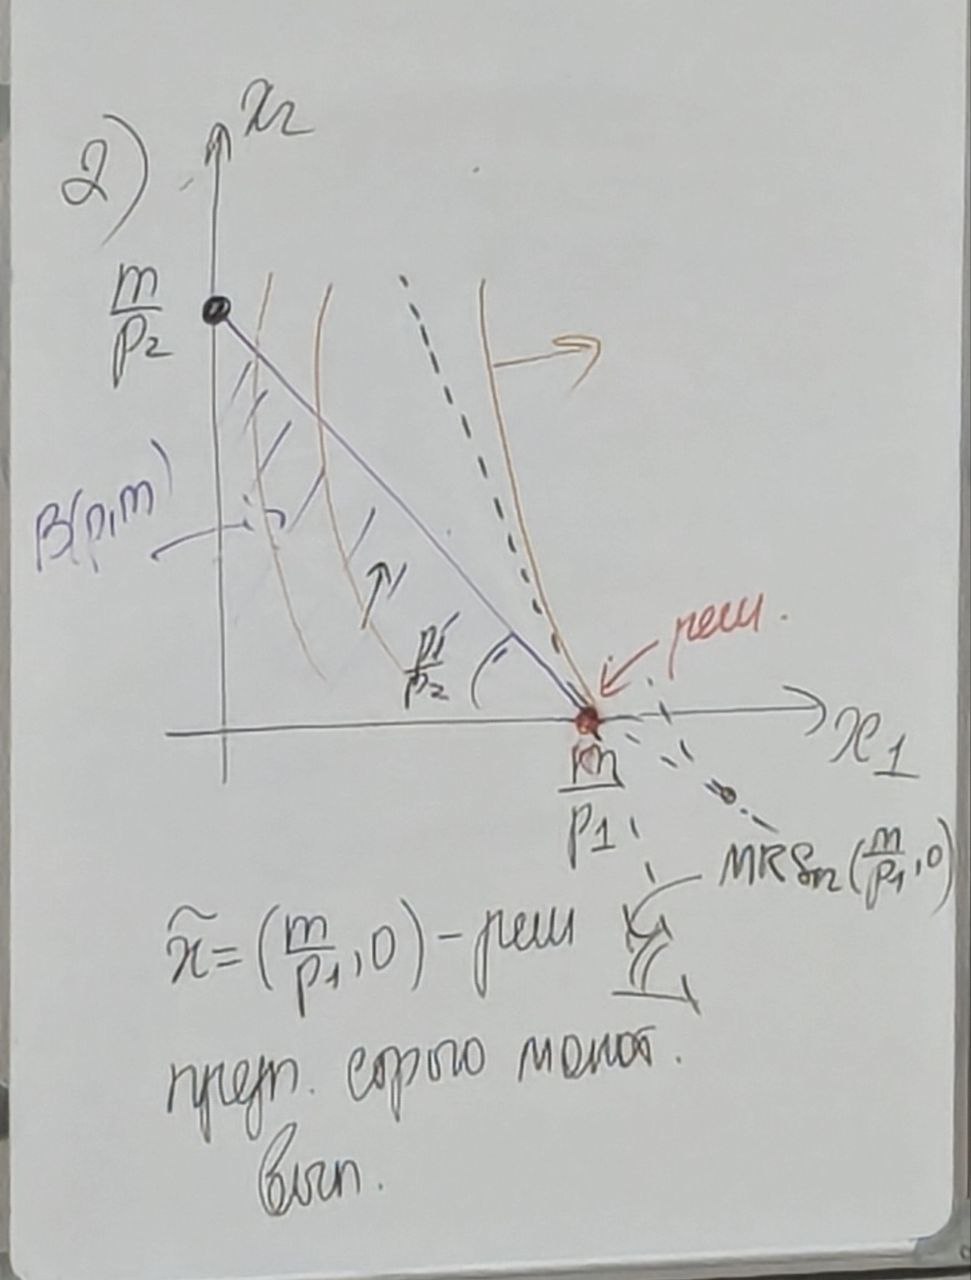 2)
x₂
m/p₂
B(p,m)
p₁/p₂
реш.
x₁
m/p₁
MRS₁₂(m/p₁,0)
x̃=(m/p₁,0)-реш
предп. строго монот.
вып.